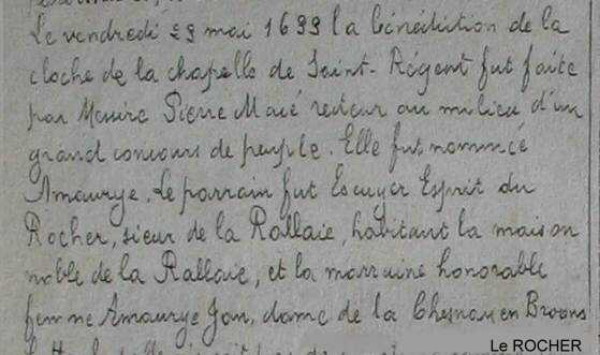 Le vendredi 29 mai 1699 la bénédiction de la
cloche de la chapelle de Saint-Régent fut faite
par Messire Pierre Maié recteur au milieu d'un
grand concours de peuple. Elle fut nommée
Amaurye. Le parrain fut Escuyer Esprit du
Rocher, sieur de la Rallaie, habitant la maison
noble de la Rallaie, et la marraine honorable
femme Amaurye Jan, dame de la Chesnaye en Broons
Le ROCHER